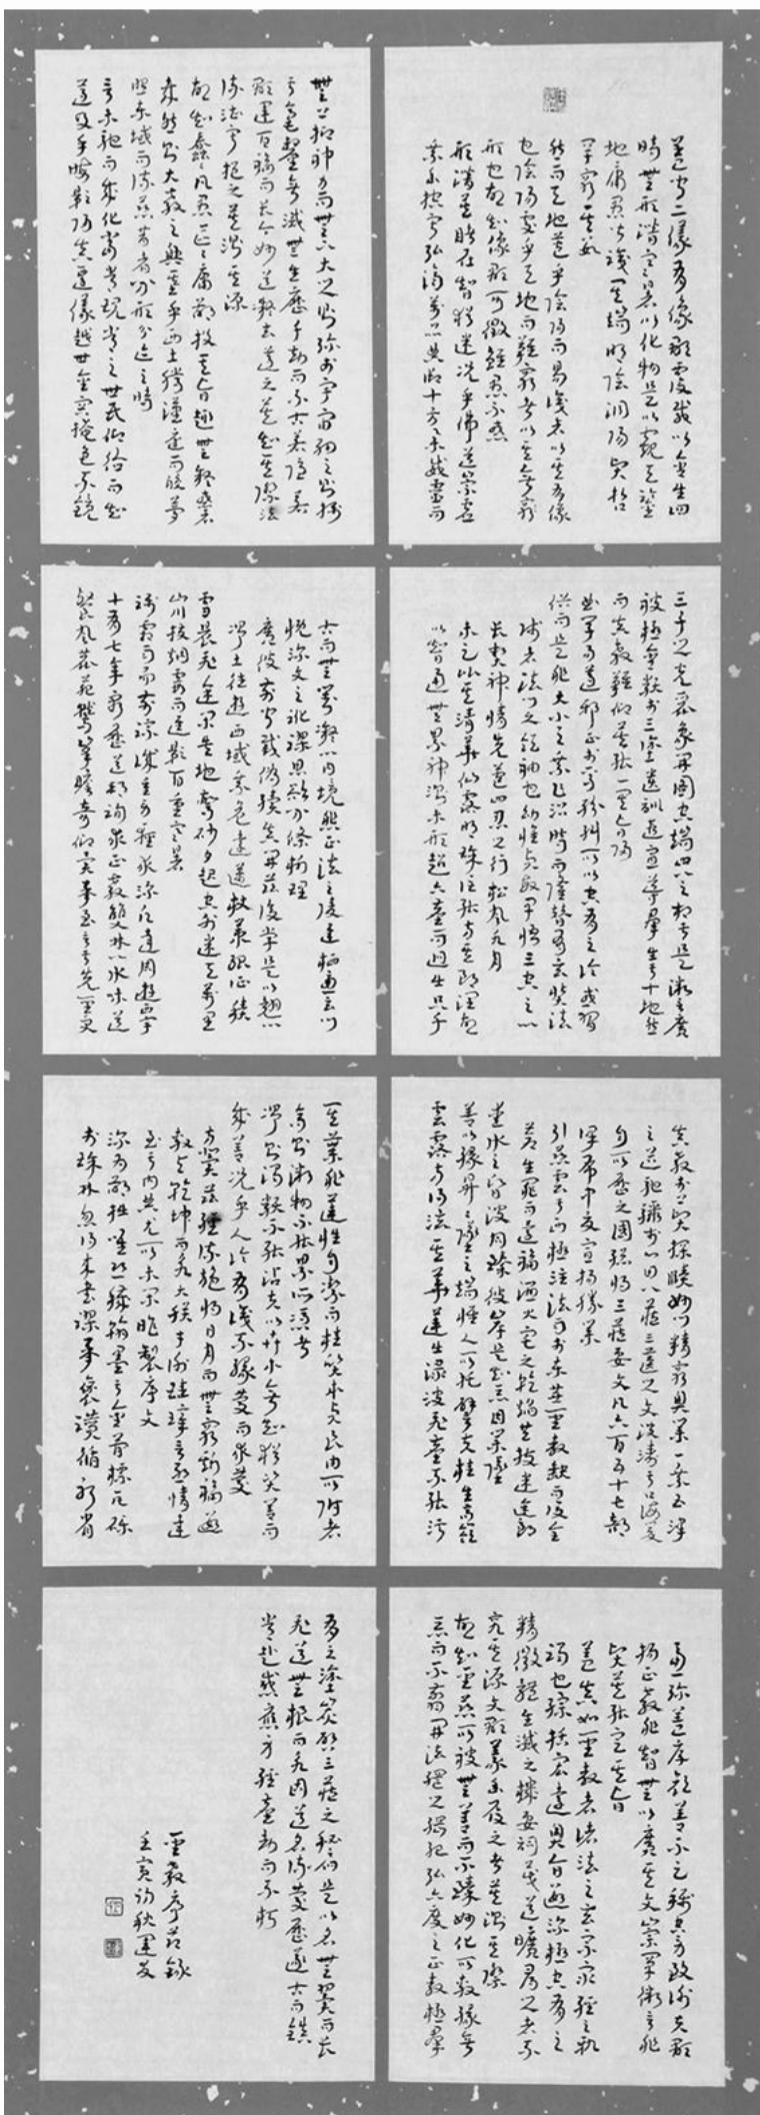 蓋聞二儀有像顯覆載以含生四
時無形潛寒暑以化物是以窺天鑒
地庸愚皆識其端明陰洞陽賢哲
罕窮其數
然而天地苞乎陰陽而易識者以其有像
也陰陽處乎天地而難窮者以其無形
也故知像顯可徵雖愚不惑
形潛莫睹在智猶迷況乎佛道崇虛
乘幽控寂弘濟萬品典御十方舉威靈而
無上抑神力而無下大之則彌於宇宙細之則攝
於毫釐無滅無生歷千劫而不古若隱若
顯運百福而長今妙道凝玄遵之莫知其際法
流湛寂挹之莫測其源
故知蠢蠢凡愚區區庸鄙投其旨趣無疑惑
者哉然則大教之興基乎西土騰漢庭而皎夢
照東域而流慈昔者分形分跡之時
言未馳而成化當常現常之世民仰德而知
遵及乎晦影歸真遷儀越世金容掩色不鏡
三千之光麗象開圖空端四八之相於是微言廣
被拯含類於三塗遺訓遐宣導群生於十地然
而真教難仰莫能一其旨歸
曲學易遵邪正於焉紛糺所以空有之論或習
俗而是非大小之乘乍沿時而隆替有玄奘法
師者法門之領袖也幼懷貞敏早悟三空之心
長契神情先苞四忍之行松風水月
未足比其清華仙露明珠詎能方其朗潤故
以智通無累神測未形超六塵而迥出只千
古而無對凝心內境悲正法之陵遲栖慮玄門
慨深文之訛謬思欲分條析理
廣彼前聞截偽續真開茲後學是以翹心
淨土往遊西域乘危遠邁杖策孤征積
雪晨飛途間失地驚砂夕起空外迷天萬里
山川撥煙霞而進影百重寒暑
躡霜雨而前蹤誠重勞輕求深願達周遊西宇
十有七年窮歷道邦詢求正教雙林八水味道
餐風鹿菀鷲峯瞻奇仰異承至言於先聖受
真教於上賢探賾妙門精窮奧業一乘五律
之道馳驟於心田八藏三篋之文波濤於口海爰
自所歷之國總將三藏要文凡六百五十七部
譯布中夏宣揚勝業
引慈雲於西極注法雨於東垂聖教缺而復全
蒼生罪而還福濕火宅之乾焰共拔迷途朗
愛水之昏波同臻彼岸是知惡因業墜
善以緣昇昇墜之端惟人所托譬夫桂生高嶺
雲露方得泫其華蓮出淥波飛塵不能汙
其葉非蓮性自潔而桂質本貞良由所附者
高則微物不能累所憑者
淨則濁類不能沾夫以卉木無知猶資善而
成善況乎人倫有識不緣慶而求慶
方冀茲經流施將日月而無窮斯福遐
敷與乾坤而永大朕才謝珪璋言慚博達
至於內典尤所未閑昨製序文
深為鄙拙唯恐穢翰墨於金簡標瓦礫
於珠林忽得來書謬承褒讚循躬省
慮彌益厚顏善不足稱空勞致謝夫顯
揚正教非智無以廣其文崇闡微言非
賢莫能定其旨
蓋真如聖教者諸法之玄宗眾經之軌
躅也綜括宏遠奧旨遐深極空有之
精微體生滅之機要詞茂道曠尋之者不
究其源文顯義幽履之者莫測其際
故知聖慈所被業無善而不臻妙化所敷緣無
惡而不翦開法網之綱紀弘六度之正教拯群
有之塗炭啟三藏之秘扃是以名無翼而長
飛道無根而永固道名流慶歷遂古而鎮
常赴感應身經塵劫而不朽
聖教序節錄
壬寅初秋運發